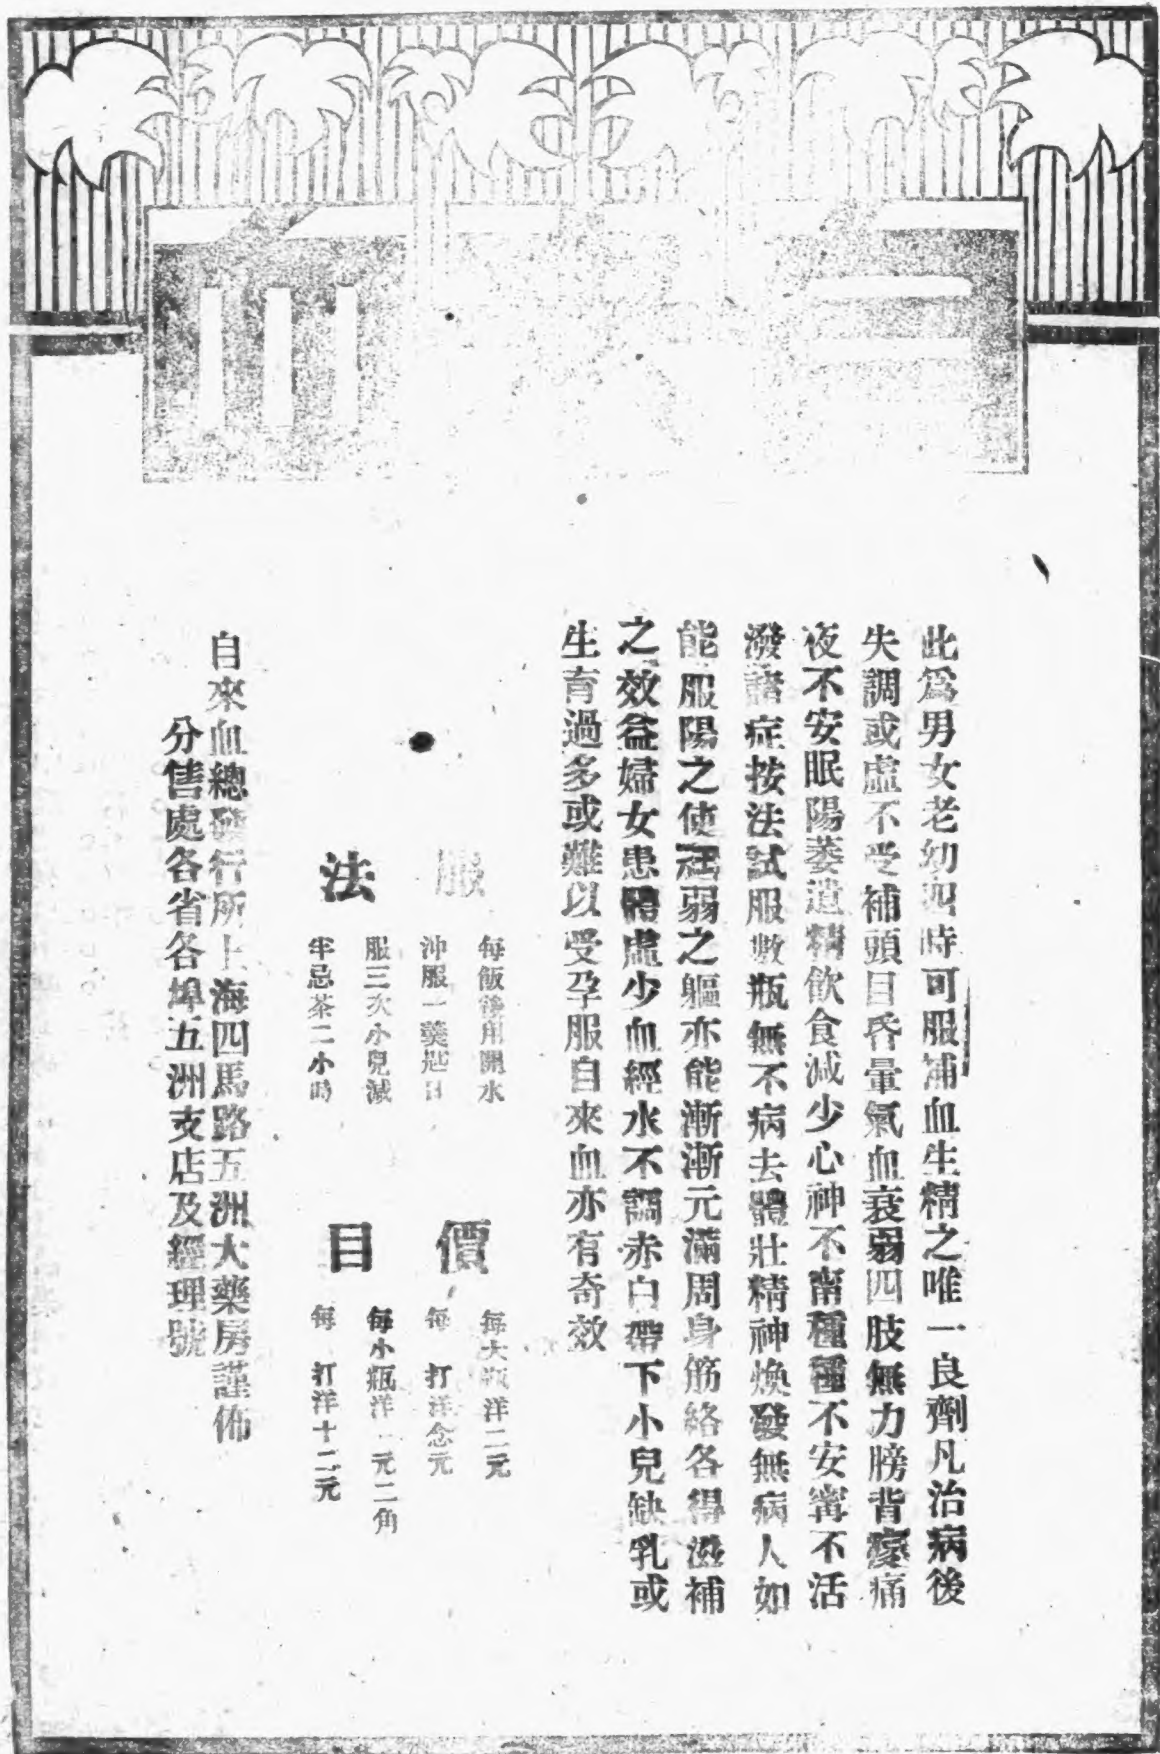 自來血
此爲男女老幼四時可服補血生精之唯一良劑凡治病後
失調或虛不受補頭目昏暈氣血衰弱四肢無力膀背痠痛
夜不安眠陽萎遺精飲食減少心神不甯種種不安寗不活
潑諸症按法試服數瓶無不病去體壯精神煥發無病人如
能服陽之使尫弱之軀亦能漸漸元滿周身筋絡各得滋補
之效益婦女患體虛少血經水不調赤白帶下小兒缺乳或
生育過多或難以受孕服自來血亦有奇效
服法
每飯後用開水
沖服一羹匙日
服三次小兒減
半忌茶二小時
價目
每大瓶洋二元
每 打洋念元
每小瓶洋一元二角
每 打洋十二元
自來血總發行所上海四馬路五洲大藥房謹佈
分售處各省各埠五洲支店及經理號